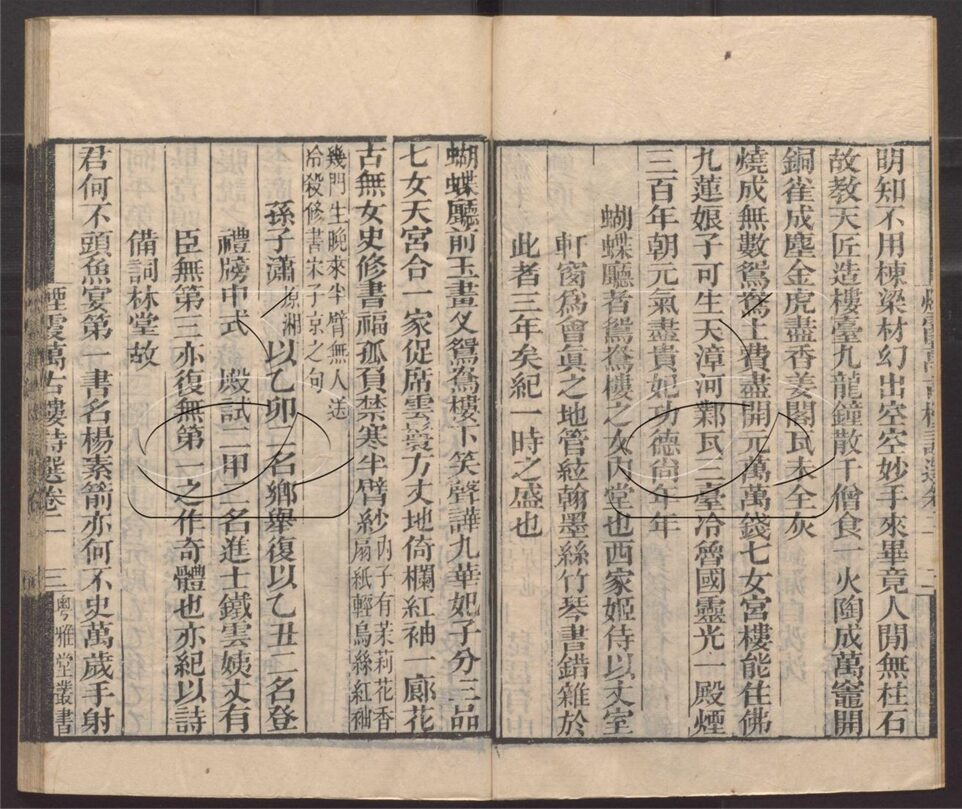 明知不用棟梁材幻出空空妙手來畢竟人間無柱石
故教天匠造樓臺九龍鐘散千僧食一火陶成萬竈開
銅雀成塵金虎盡香姜閣瓦未全灰
燒成無數鴛鴦土費盡開元萬萬錢七女宮樓能住佛
九蓮娘子可生天漳河鄴瓦三臺冷魯國靈光一殿煙
三百年朝元氣盡貴妃功德尙年年
蝴蝶廳者鴛鴦樓之女內堂也西家姬侍以丈室
軒窗為會真之地管絃翰墨絲竹琴書錯雜於
此者三年矣紀一時之盛也
蝴蝶廳前玉畫叉鴛鴦樓下笑聲譁九華妃子分三品
七女天宮合一家促席雲鬟方丈地倚欄紅袖一廊花
古無女史修書福孤負禁寒半臂紗內子有茉莉花香
扇紙輕烏絲紅袖
幾門生晚來半臂無人送
冷殺修書宋子京之句
孫子瀟原湘以乙卯二名鄉舉復以乙丑二名登
禮牓中式殿試二甲二名進士鐵雲姨丈有
臣無第三亦復無第一之作奇體也亦紀以詩
備詞林堂故
君何不頭魚宴第一書名楊素箭亦何不史萬歲手射
煙霞萬古樓詩選卷二
三
粵雅堂叢書